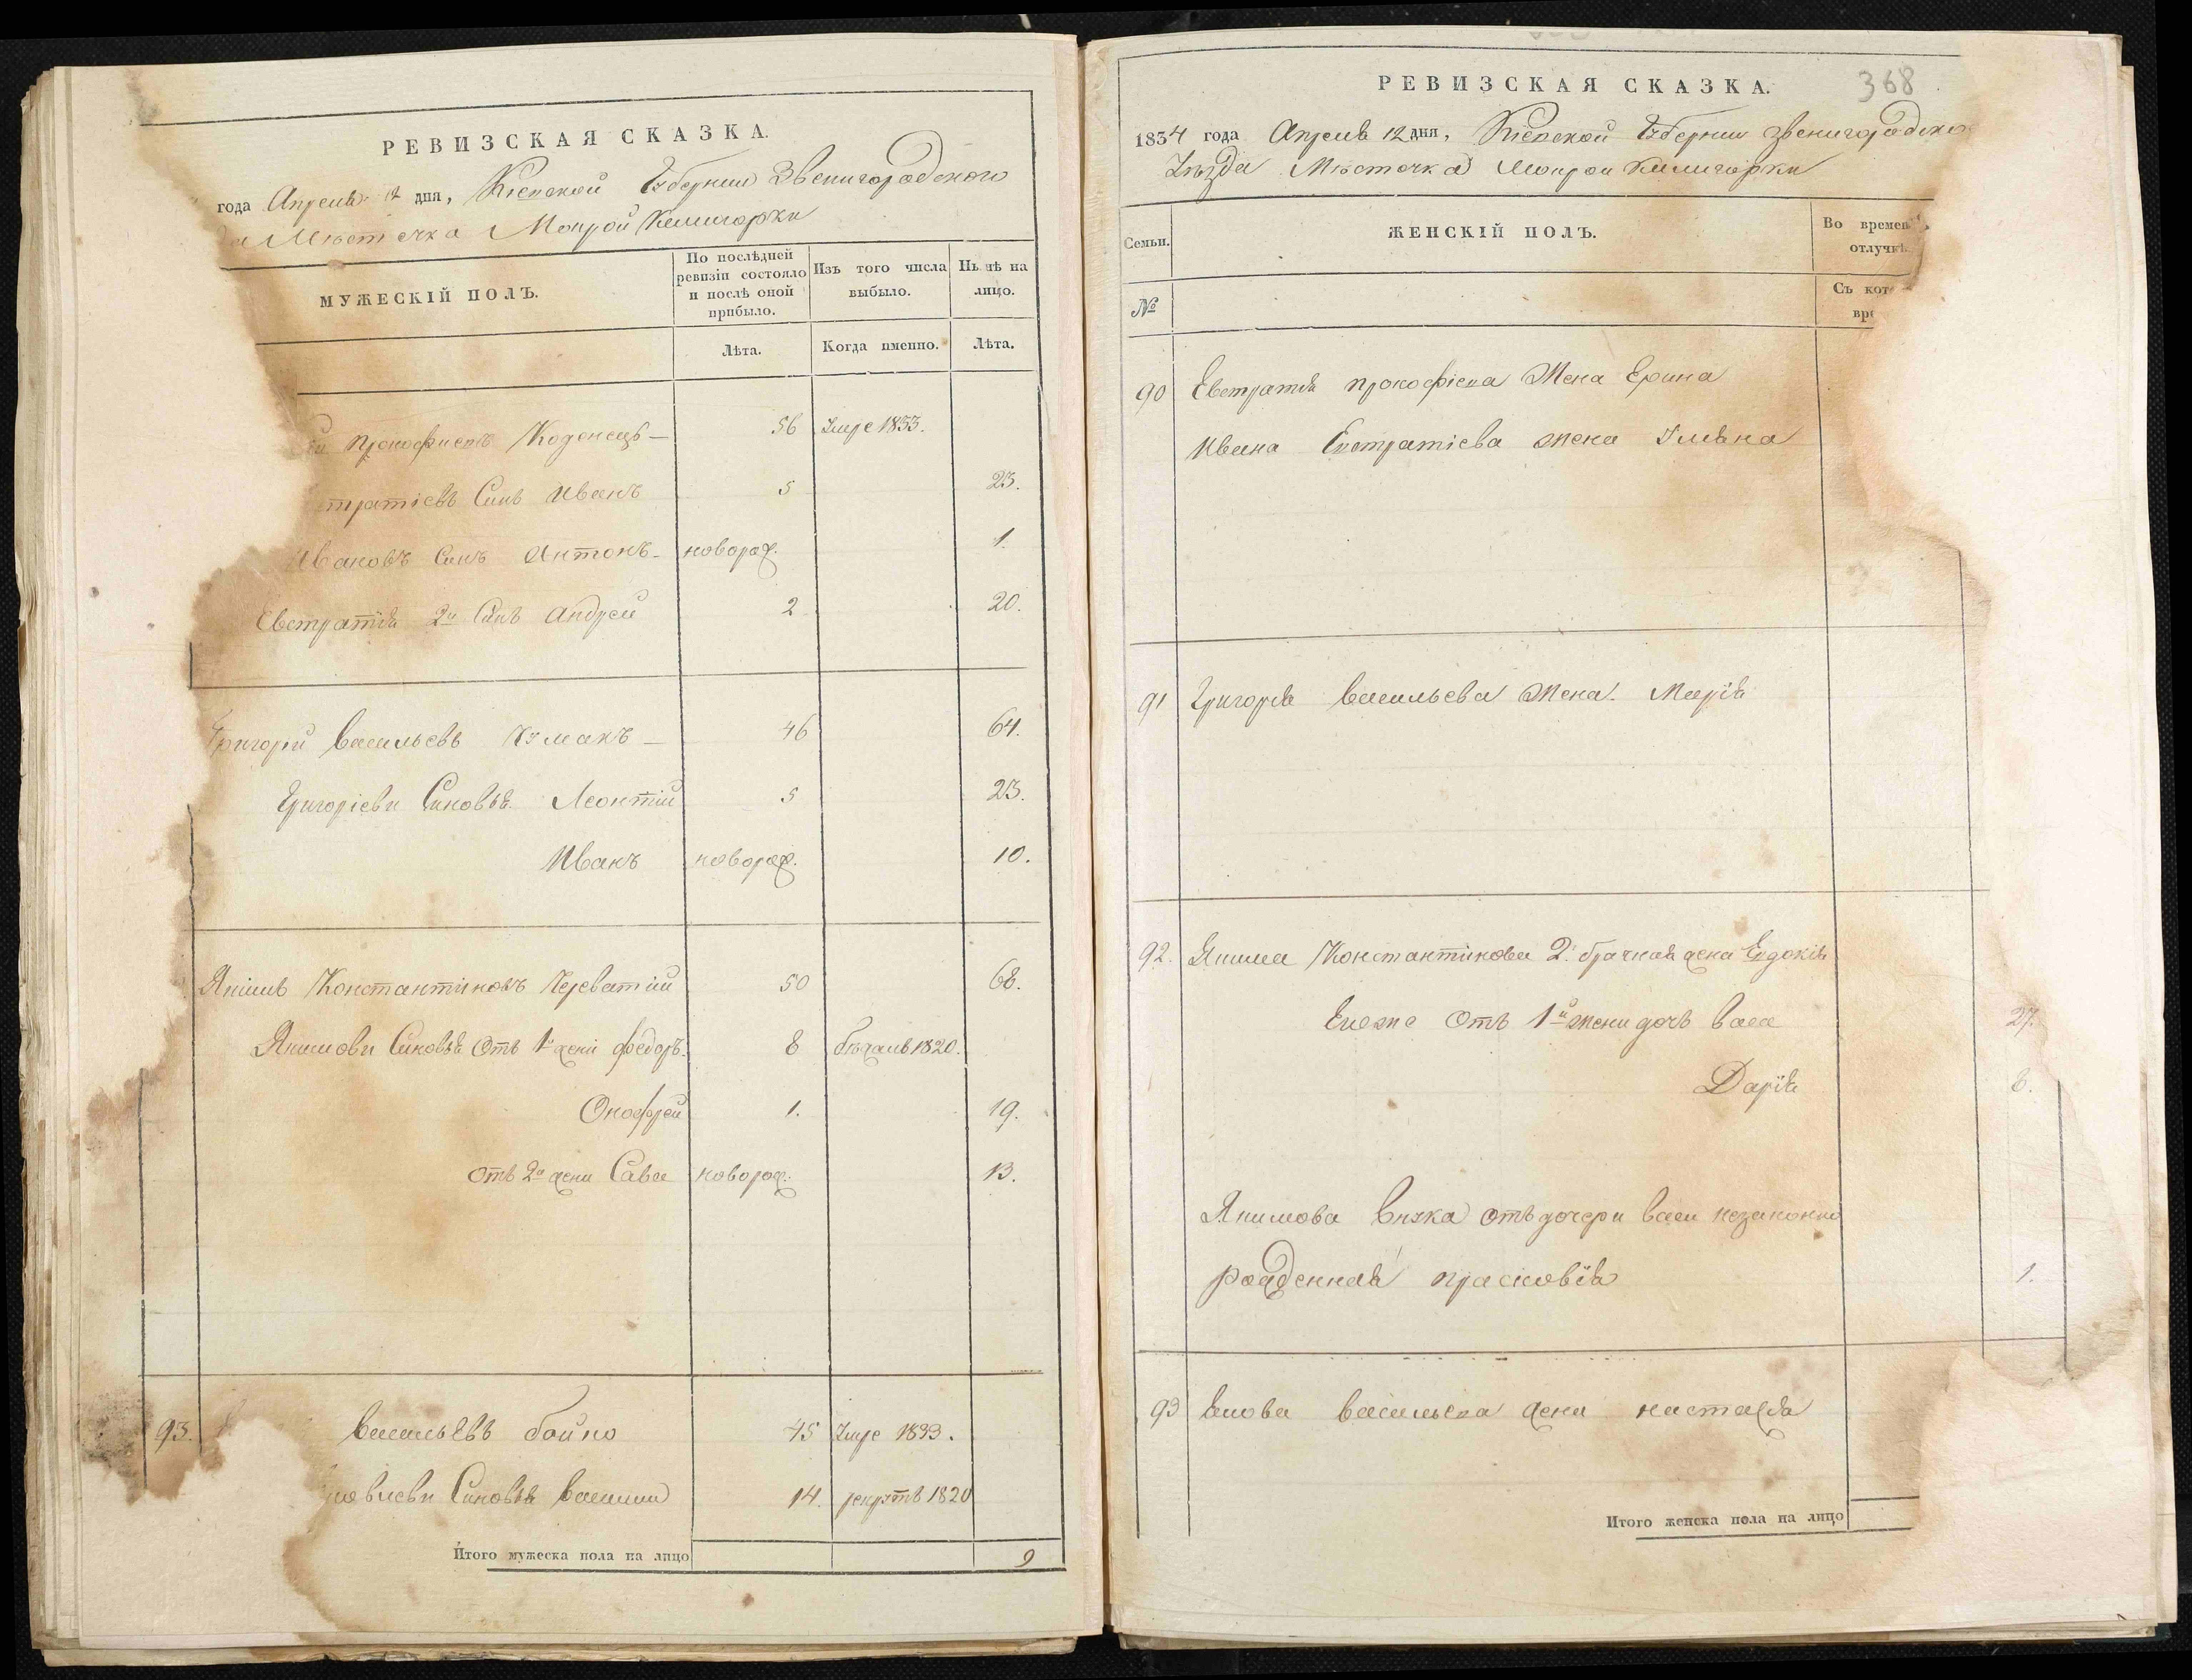 РЕВИЗСКАЯ СКАЗКА.
года Апреля 12 дня, Кіевской Губерніи Звенигородского
Мѣстечка Мокрой Калигорки
МУЖЕСКІЙ ПОЛЪ.
По послѣдней ревизіи состояло и послѣ оной прибыло.
Изъ того числа выбыло.
Нынѣ на лицо.
Лѣта.
Когда именно.
Лѣта.
Прокофиевъ Коденецъ 56 Умре 1833.
Синъ Иванъ 5 23.
Ивановъ Синъ Антонъ новорож. 1.
Евстратія 2й Синъ Андрей 2 20.
Григорій Васильевъ 46 64.
Григоріеви Синовья Леонтій 5 23.
Иванъ новорож. 10.
Якимъ Константиновъ Череватій 50 68.
Якимови Синовья Отъ 1й жени Федоръ 8 бѣжалъ 1820.
Онофрей 1. 19.
Отъ 2й жени Сава новорож. 13.
93. Васильевъ Бойко 45 Умре 1833.
Синовья Василий 14. рекрутъ 1820
Итого мужеска пола на лицо 9
368
РЕВИЗСКАЯ СКАЗКА.
1834 года Апреля 12 дня, Кіевской Губерніи Звенигородского
Уѣзда Мѣстечка Мокрой Калигорки
Семьи.
ЖЕНСКІЙ ПОЛЪ.
Во времен
отлучкѣ
№
Съ кот
вре
90 Евстратія Прокофіева Жена Ерина
Ивана Евстратіева жена Уляна
91 Григорія Васильева Жена Марія
92. Якима Константинова 2. брачная жена Евдокія
Егоже Отъ 1й жени дочь Васа 27.
Дарія 8.
Якимова Внука отъ дочери Васи незаконно
рожденная Прасковія 1.
93 Васильева жена Настасія
Итого женска пола на лицо